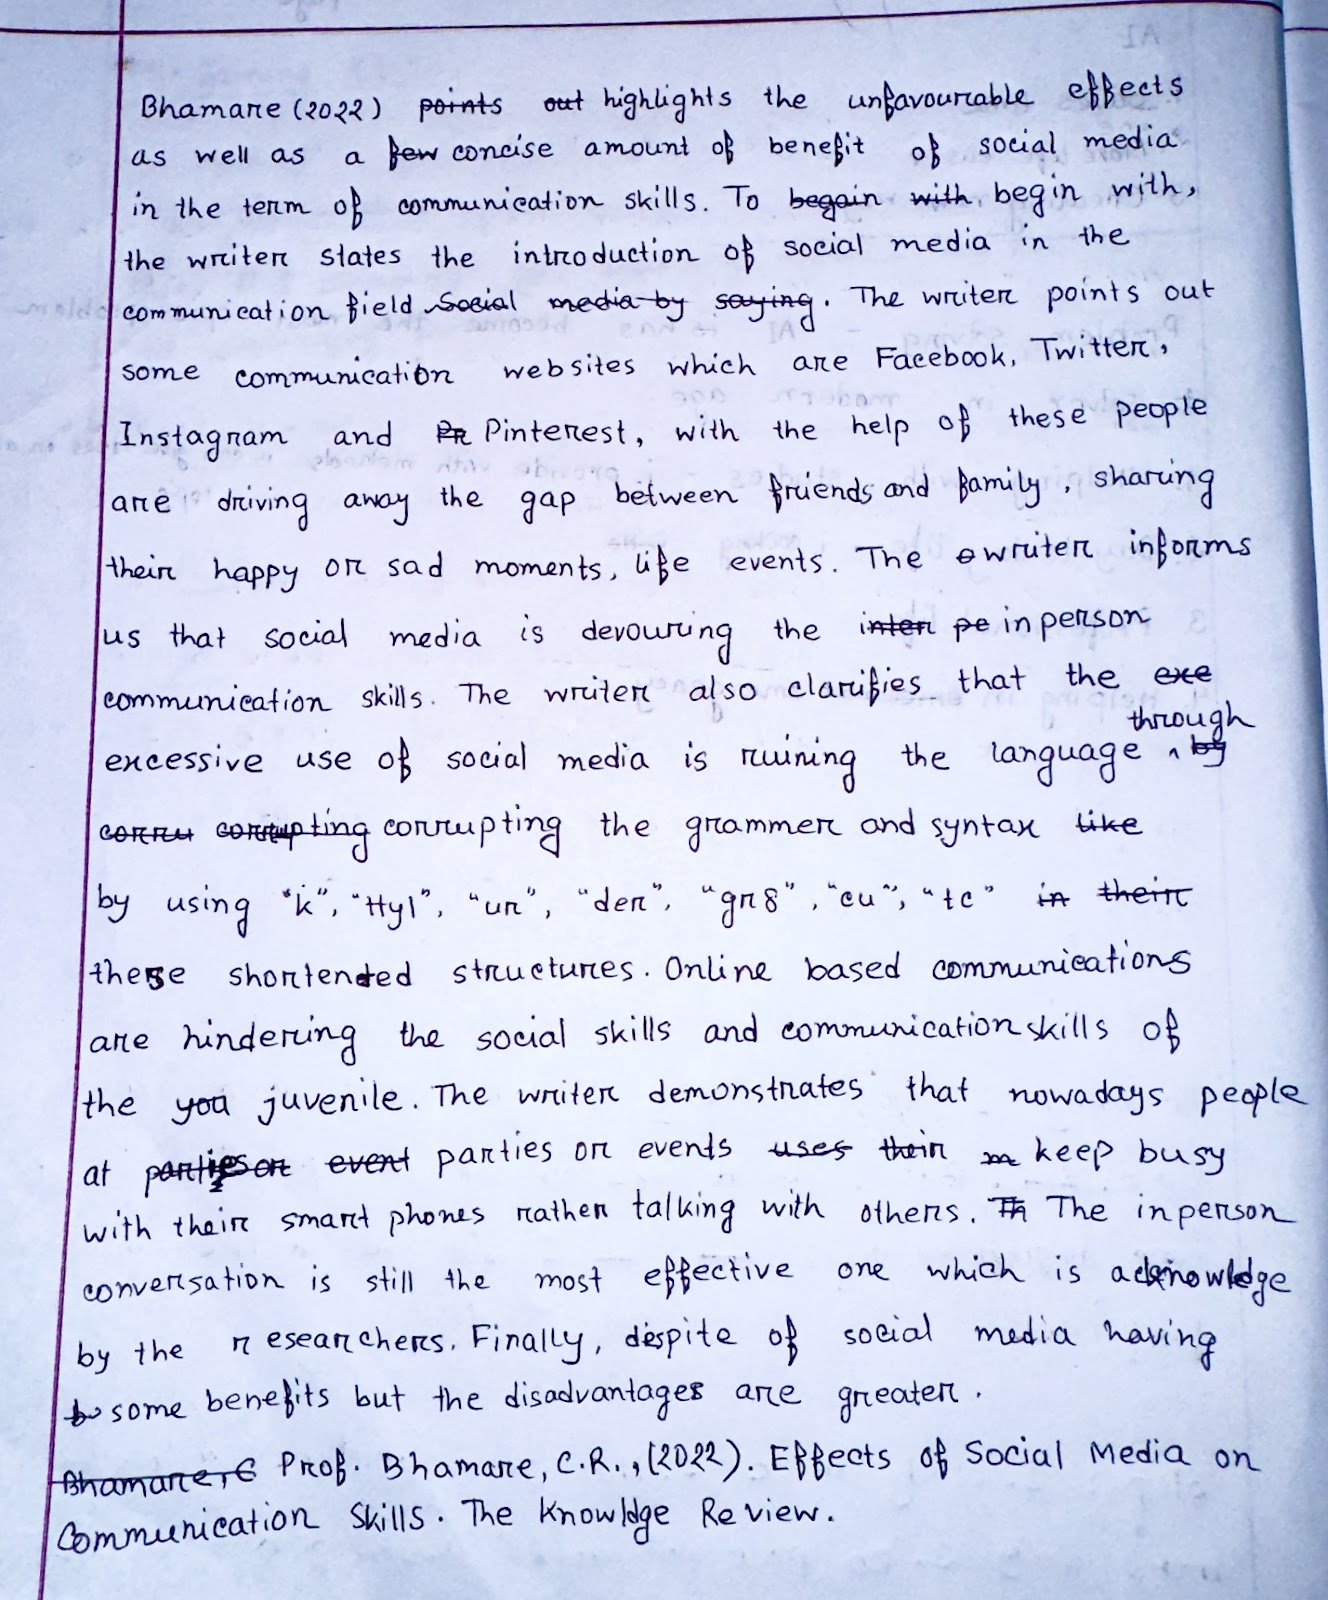 Bhamare (2022) points out highlights the unfavourable effects
as well as a few concise amount of benefit of social media
in the term of communication skills. To begain with, begin with,
the writer states the introduction of social media in the
communication field Social media by saying. The writer points out
some communication websites which are Facebook, Twitter,
Instagram and Pr Pinterest, with the help of these people
are driving away the gap between friends and family, sharing
their happy or sad moments, life events. The writer informs
us that social media is devouring the inter pe inperson
communication skills. The writer also clarifies that the exe
through
excessive use of social media is ruining the language ^ by
corru corrupting corrupting the grammer and syntax like
by using "k", "ttyl", "ur", "der", "gr8", "cu", "tc" in their
these shortended structures. Online based communications
are hindering the social skills and communication skills of
the you juvenile. The writer demonstrates that nowadays people
at parties or event parties or events uses their m keep busy
with their smart phones rather talking with others. Th The inperson
conversation is still the most effective one which is acknowldge
by the researchers. Finally, despite of social media having
b some benefits but the disadvantages are greater.
Bhamare, C Prof. Bhamare, C.R., (2022). Effects of Social Media on
Communication Skills. The Knowldge Review.